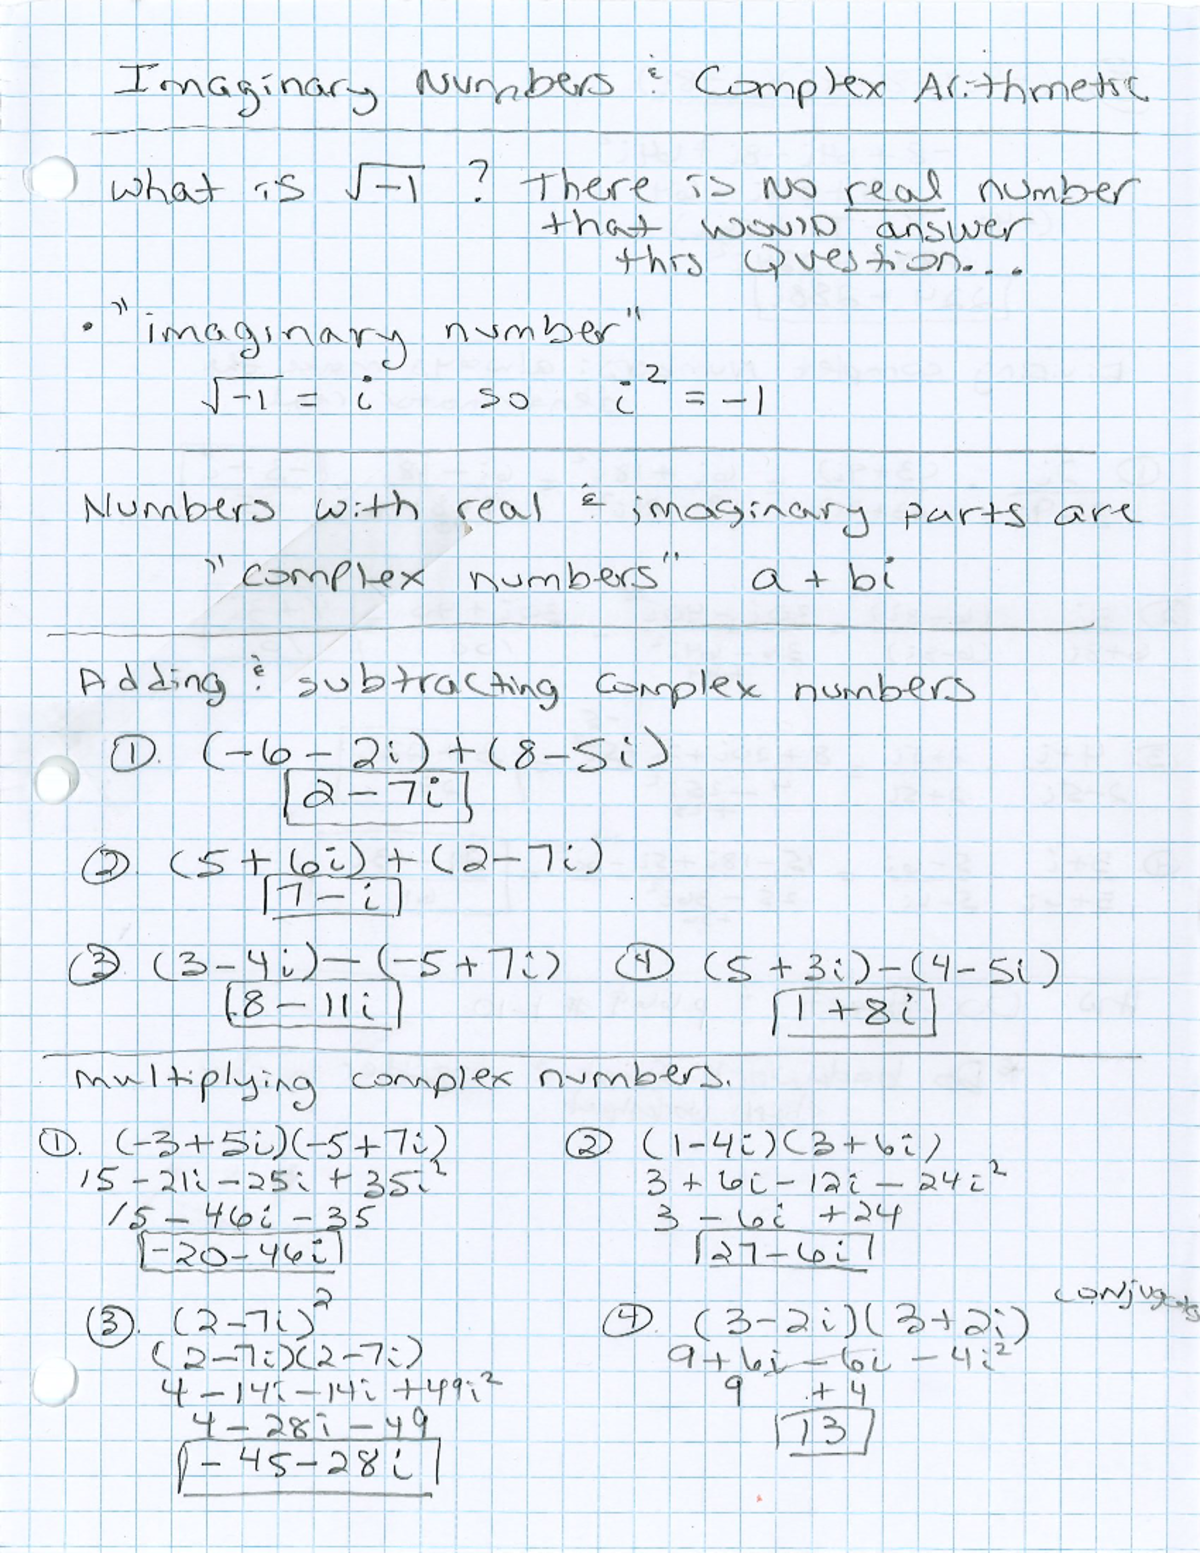 Imaginary Numbers & Complex Arithmetic
What is √-1 ? There is NO real number
that would answer
this Question...
• "imaginary number"
√-1 = i so i² = -1
Numbers with real & imaginary parts are
"complex numbers" a + bi
Adding & subtracting complex numbers
①. (-6 - 2i) + (8 - 5i)
2 - 7i
② (5 + 6i) + (2 - 7i)
7 - i
③ (3 - 4i) - (-5 + 7i) ④ (5 + 3i) - (4 - 5i)
8 - 11i 1 + 8i
Multiplying complex numbers.
①. (-3 + 5i)(-5 + 7i) ② (1 - 4i)(3 + 6i)
15 - 21i - 25i + 35i² 3 + 6i - 12i - 24i²
15 - 46i - 35 3 - 6i + 24
-20 - 46i 27 - 6i
③. (2 - 7i)² ④. (3 - 2i)(3 + 2i) conjugates
(2 - 7i)(2 - 7i) 9 + 6i - 6i - 4i²
4 - 14i - 14i + 49i² 9 + 4
4 - 28i - 49 13
-45 - 28i